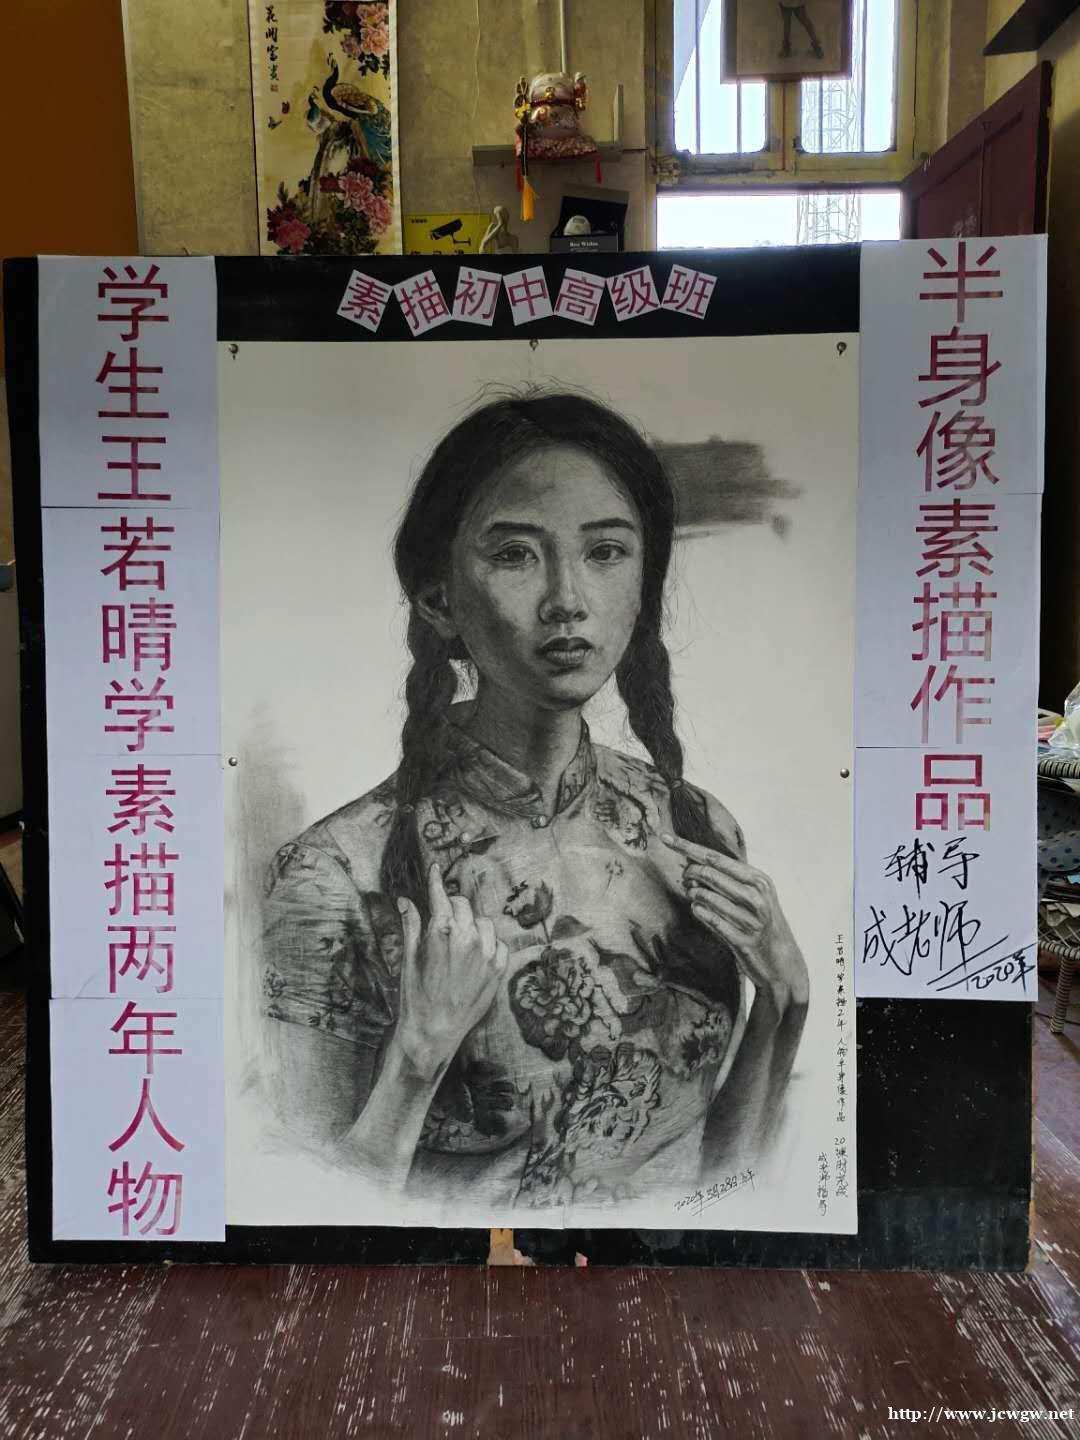 花開富贵
素描初中高级班
学生王若晴学素描两年人物
半身像素描作品
辅导
成老师
2020年
王若晴 学素描2年 人物半身像作品 20课时完成
成老师指导
2020年3月28日
Best Wishes
http://www.jcwgw.net